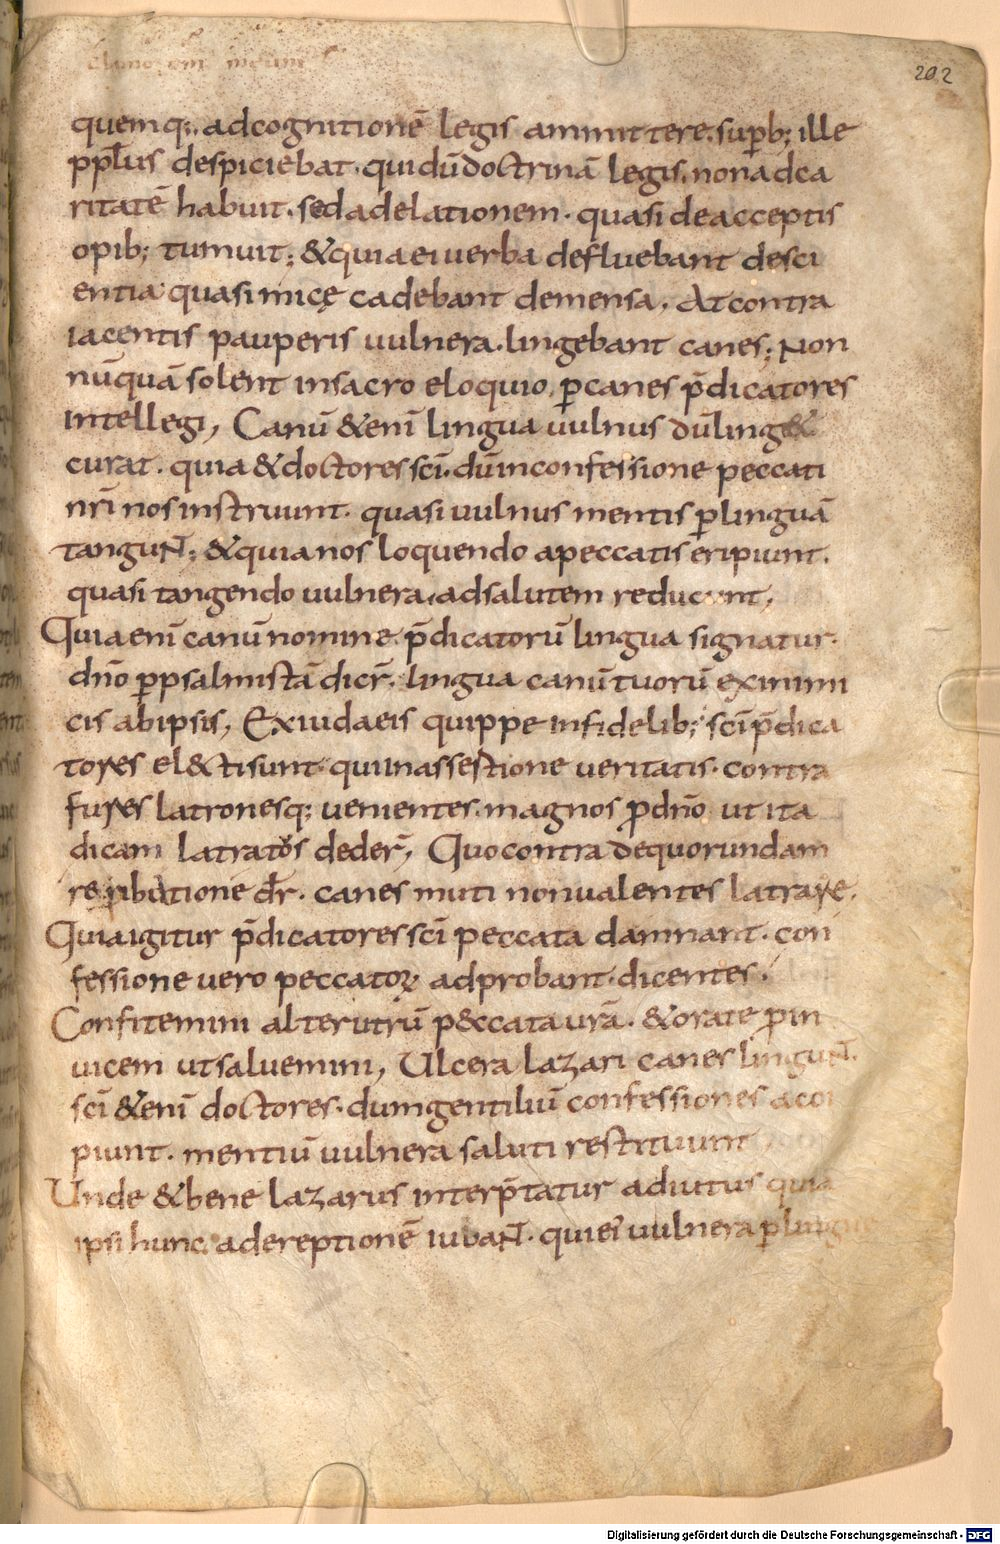 202
quemq;. adcognitionē legis ammittere. supb; ille
pplus despiciebat. quidū doctrinā legis. nonadca
ritatē habuit. sedadelationem. quasi deacceptis
opib; tumuit; &quia ei uerba defluebant desci
entia quasi micę cadebant demensa. At contra
iacentis pauperis uulnera. lingebant canes; Non
nūquā solent insacro eloquio, p̲canes p̄dicatores
intellegi, Canū &eni lingua uulnus dūling&
curat. quia &doctores sc̄i. dūinconfessione peccati
nr̄i nos instruunt. quasi uulnus mentis p̲linguā
tangunt; &quia nos loquendo apeccatis eripiunt.
quasi tangendo uulnera, adsalutem reducunt,
Quia enī canū nomine p̄dicatorū lingua signatur.
dn̄o p̲psalmistā dicr̄. lingua canū tuorū exinimi
cis abipsis, Exiudaeis quippe infidelib; sc̄i p̄dica
tores el&tisunt. quiinassertione ueritatis. contra
fures latronesq; uenientes. magnos p̲dn̄o ut ita
dicam latratos deder̄, Quocontra dequorundam
reprobatione dr̄. canes muti nonualentes latrare.
Quiaigitur p̄dicatores sc̄i peccata damnant. con
fessione uero peccatoꝝ adprobant. dicentes.
Confitemini alterutrū p&ccata urā. &orate p̲in
uicem utsaluemini, Ulcera lazari canes lingunt.
sc̄i &enī doctores. dumgentiliū confessiones acci
piunt. mentiū uulnera saluti restituunt
Unde &bene lazarus interp̄tatur adiutus quia
ipsi hunc adereptionē iubant. quiei uulnera p̲lingue
Digitalisierung gefördert durch die Deutsche Forschungsgemeinschaft - DFG